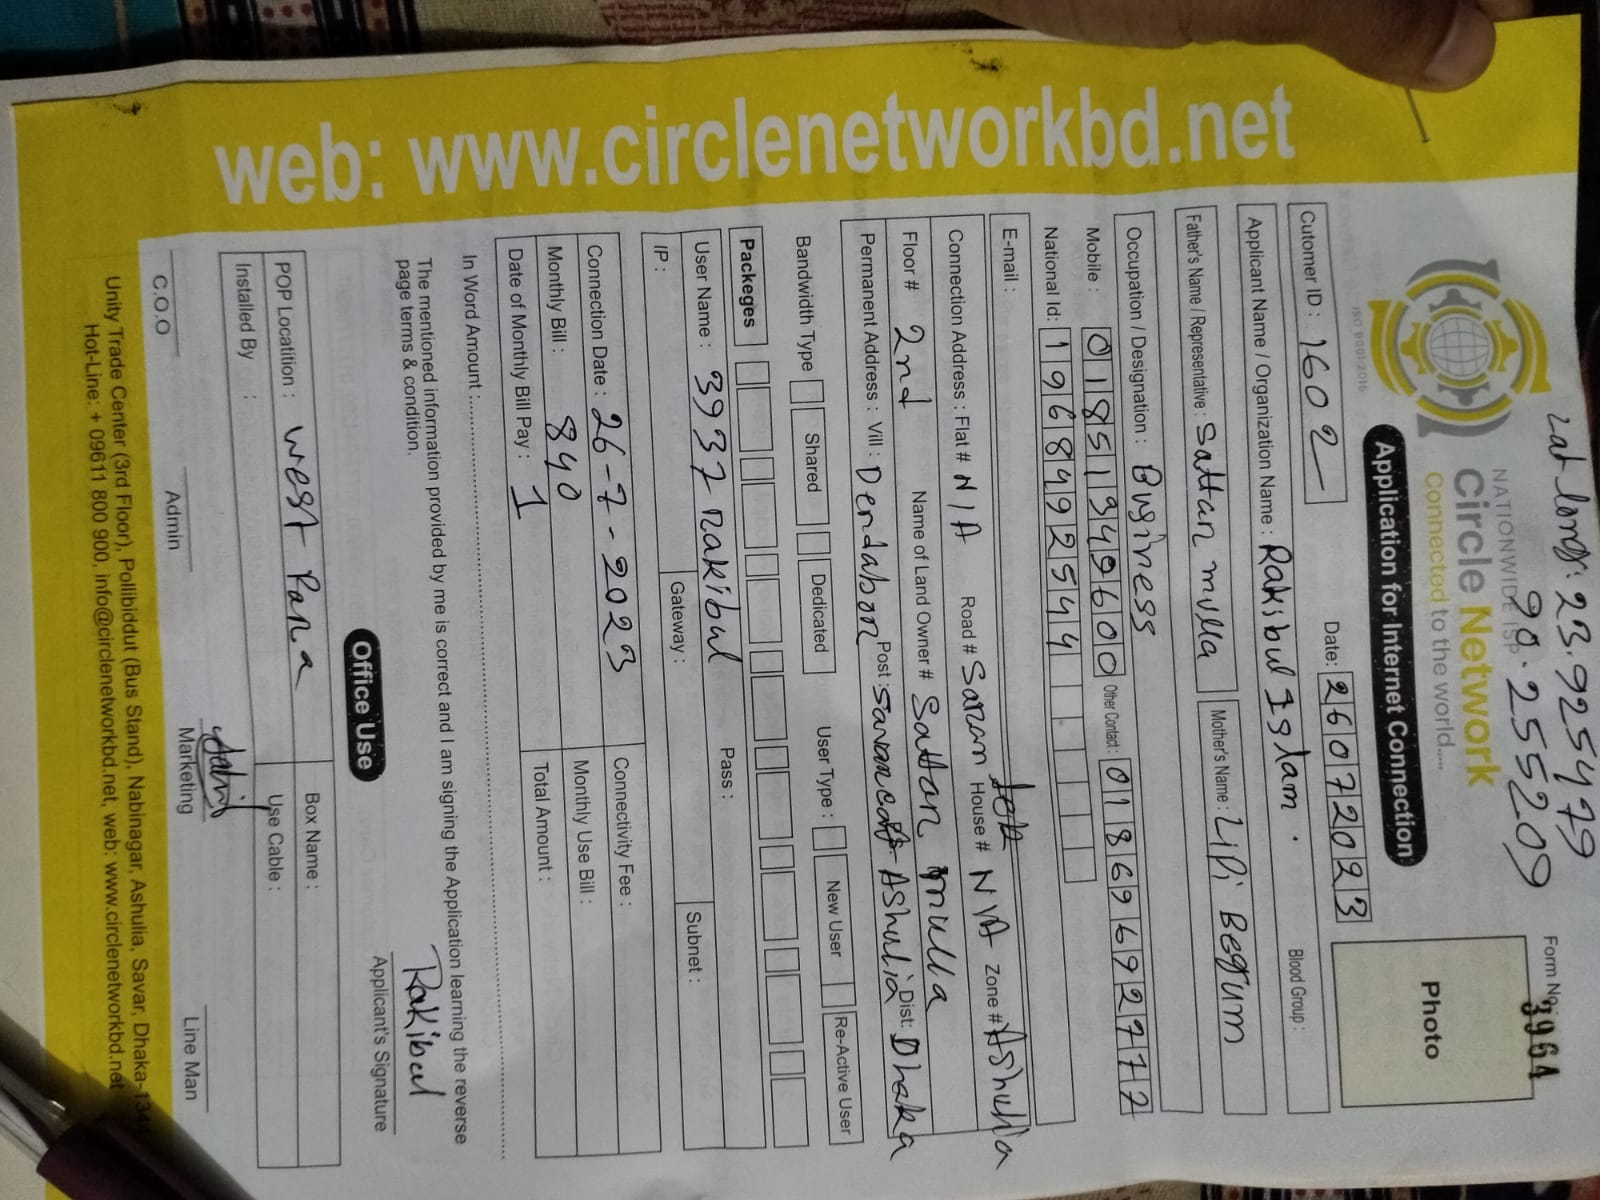 Lat long: 23.925479
90.255209
Form No. 3964
NATIONWIDE ISP
Circle Network
Connected to the world....
ISO 9001:2015
Application for Internet Connection
Photo
Cutomer ID : 1602
Date: 26072023
Applicant Name / Organization Name : Rakibul Islam .
Blood Group :
Father's Name / Representative : Sattar mulla
Mother's Name : Lipi Begum
Occupation / Designation : Business
Mobile : 01851949600
Other Contact : 01869692777
National Id: 1968492544
E-mail :
Connection Address : Flat # N/A Road # House # N/A Zone # Ashulia
Floor # 2nd Name of Land Owner# Sattar mulla
Permanent Address : Vill : Dendabor Post : Ashulia Dist: Dhaka
Bandwidth Type Shared Dedicated User Type : New User Re-Active User
Packeges
User Name : 3937 Rakibul Pass :
IP : Gateway : Subnet :
Connection Date : 26-7-2023 Connectivity Fee :
Monthly Bill : 840 Monthly Use Bill :
Date of Monthly Bill Pay : 1 Total Amount :
In Word Amount :
The mentioned information provided by me is correct and I am signing the Application learning the reverse
page terms & condition.
Rakibul
Applicant's Signature
Office Use
POP Locatition : west Para Box Name :
Installed By : Use Cable :
C.O.O Admin Marketing Line Man
Unity Trade Center (3rd Floor), Pollibiddut (Bus Stand), Nabinagar, Ashulia, Savar, Dhaka-1344
Hot-Line: + 09611 800 900, info@circlenetworkbd.net, web: www.circlenetworkbd.net
web: www.circlenetworkbd.net